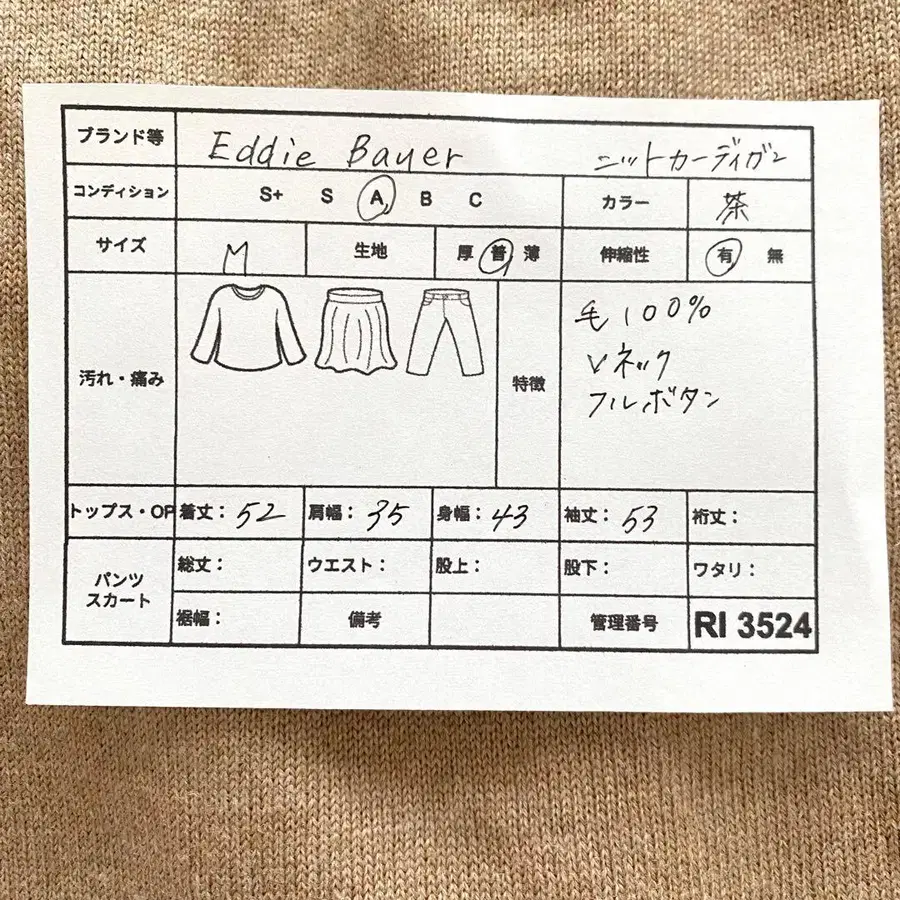 ブランド等 Eddie Bauer ニットカーディガン
コンディション S+ S A B C カラー 茶
サイズ M 生地 厚 普 薄 伸縮性 有 無
汚れ・痛み 特徴 毛100%
Vネック
フルボタン
トップス・OP 着丈：52 肩幅：35 身幅：43 袖丈：53 裄丈：
パンツ スカート 総丈： ウエスト： 股上： 股下： ワタリ：
裾幅： 備考 管理番号 RI 3524